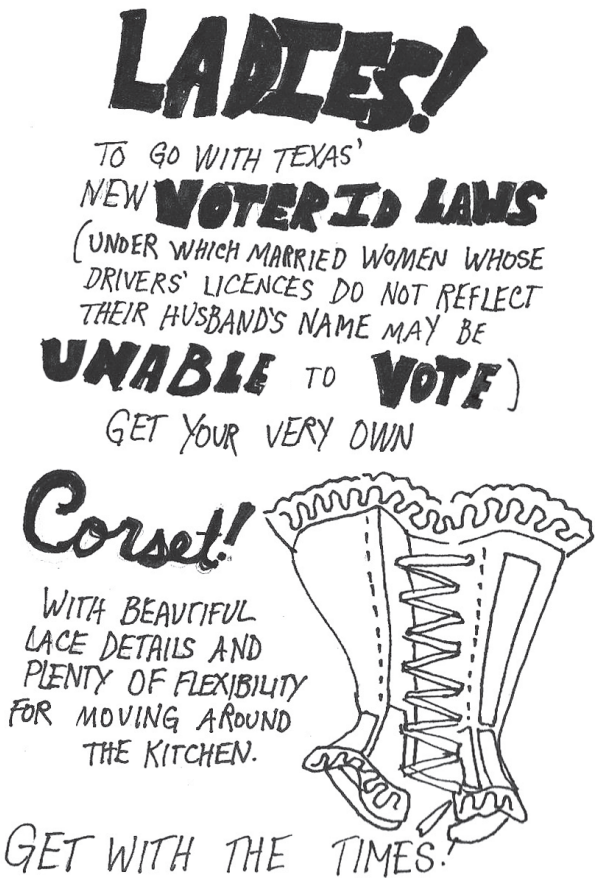 LADIES!
TO GO WITH TEXAS'
NEW VOTER ID LAWS
(UNDER WHICH MARRIED WOMEN WHOSE
DRIVERS' LICENCES DO NOT REFLECT
THEIR HUSBAND'S NAME MAY BE
UNABLE TO VOTE)
GET YOUR VERY OWN
Corset!
WITH BEAUTIFUL
LACE DETAILS AND
PLENTY OF FLEXIBILITY
FOR MOVING AROUND
THE KITCHEN.
GET WITH THE TIMES!